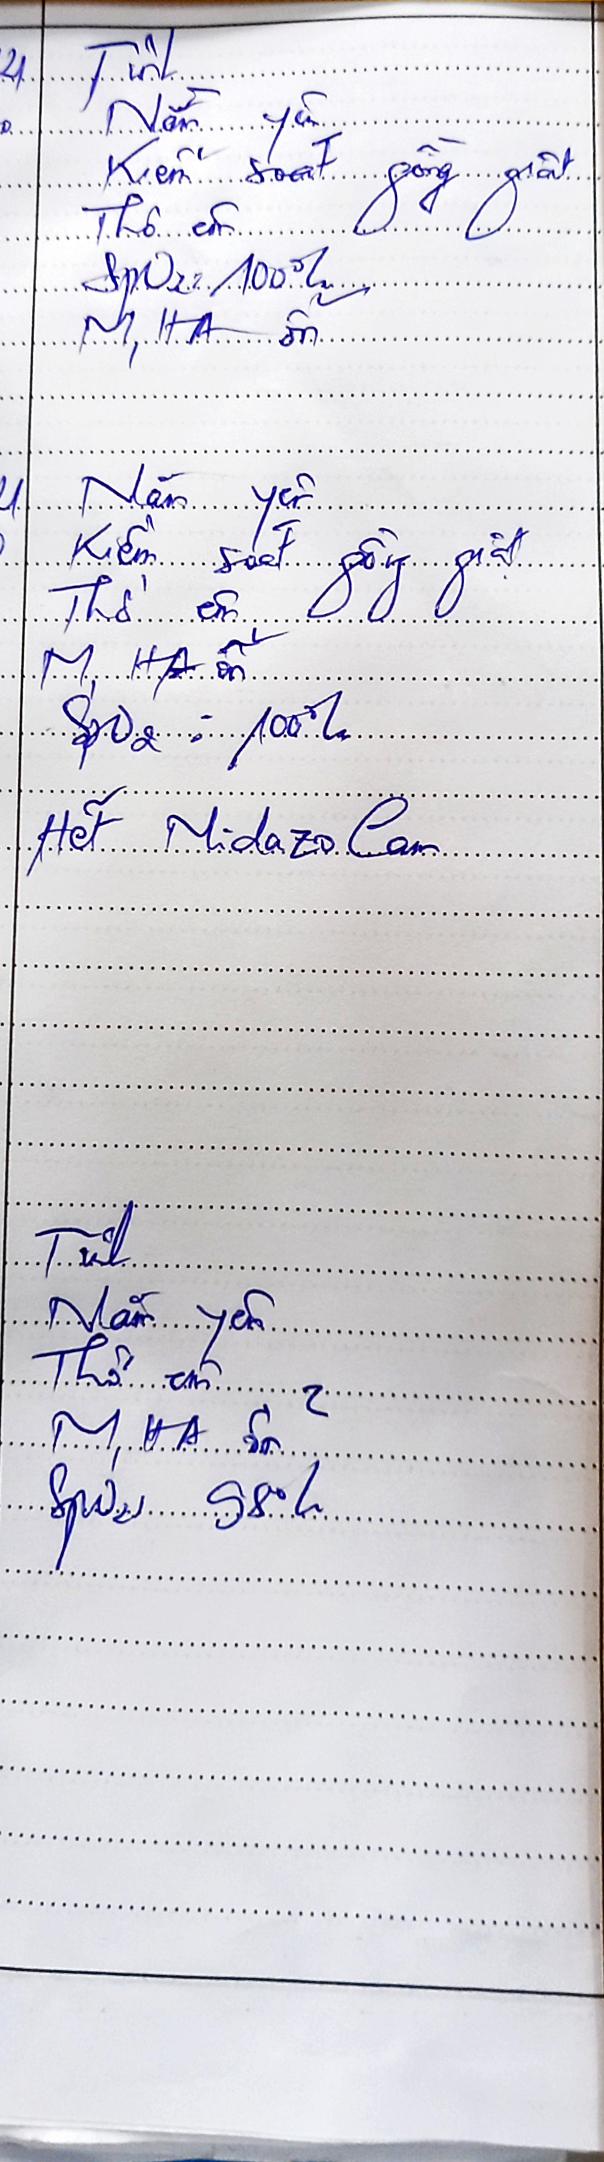 21 Tỉnh
Nằm yên
Kiểm soát gồng giật
Thở êm
SpO2: 100%
M, HA ổn
21 Nằm yên
Kiểm soát gồng giật
Thở êm
M, HA ổn
SpO2 = 100%
Hết Midazolam
Tỉnh
Nằm yên
Thở êm
M, HA ổn
SpO2 98%